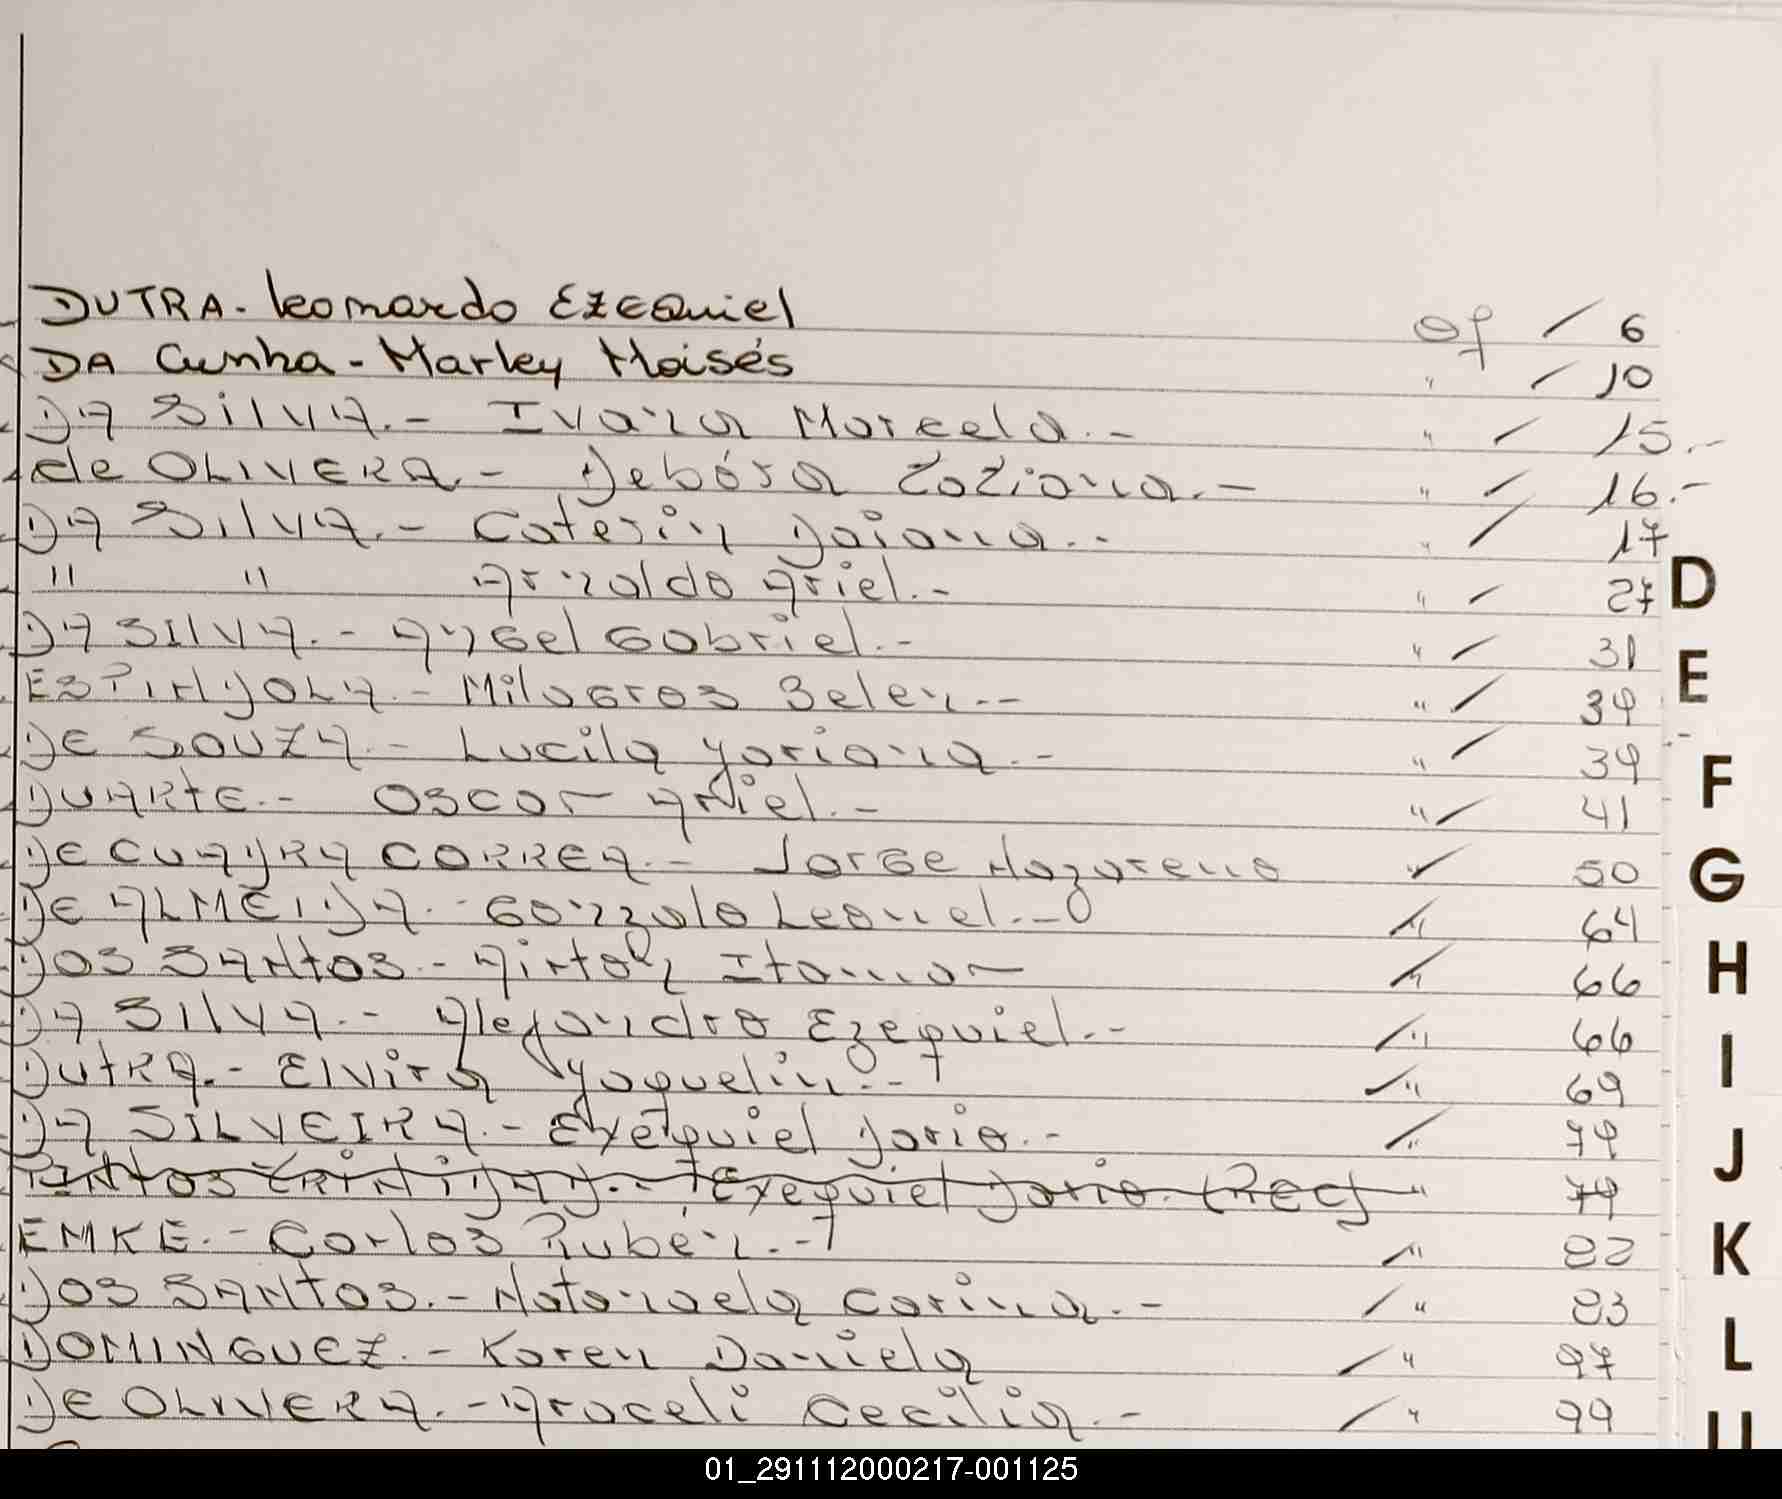 DUTRA - Leonardo Ezequiel Of / 6
DA Cunha - Marley Moisés " / 10
DA SILVA.- Ivana Marcela.- " / 15.-
de OLIVERA.- Debóra Tatiana.- " / 16.-
DA SILVA.- Caterin Daiana.- " / 17
" " Arnaldo Ariel.- " / 27
DA SILVA.- Angel Gabriel.- " / 31
ESPINDOLA.- Milagros Belen.- " / 34
DE SOUZA.- Lucila Yoriana.- " / 39
DUARTE.- Oscar Ariel.- " / 41
DE CUADRA CORREA.- Jorge Nazareno " / 50
DE ALMEIDA.- Gonzalo Leonel.- / " 64
DOS SANTOS.- Airton Itamar / " 66
DA SILVA.- Alejandro Ezequiel.- / " 66
DUTRA.- Elvira Yaquelin.- / " 69
DA SILVEIRA.- Exequiel Dario.- / " 79
Exequiel Dario. (Rec) " 79
EMKE.- Carlos Rubén.- / " 82
DOS SANTOS.- Natanaela Carina.- / " 83
DOMINGUEZ.- Karen Daniela / " 97
DE OLIVERA.- Araceli Cecilia.- / " 99
D
E
F
G
H
I
J
K
L
01_291112000217-001125